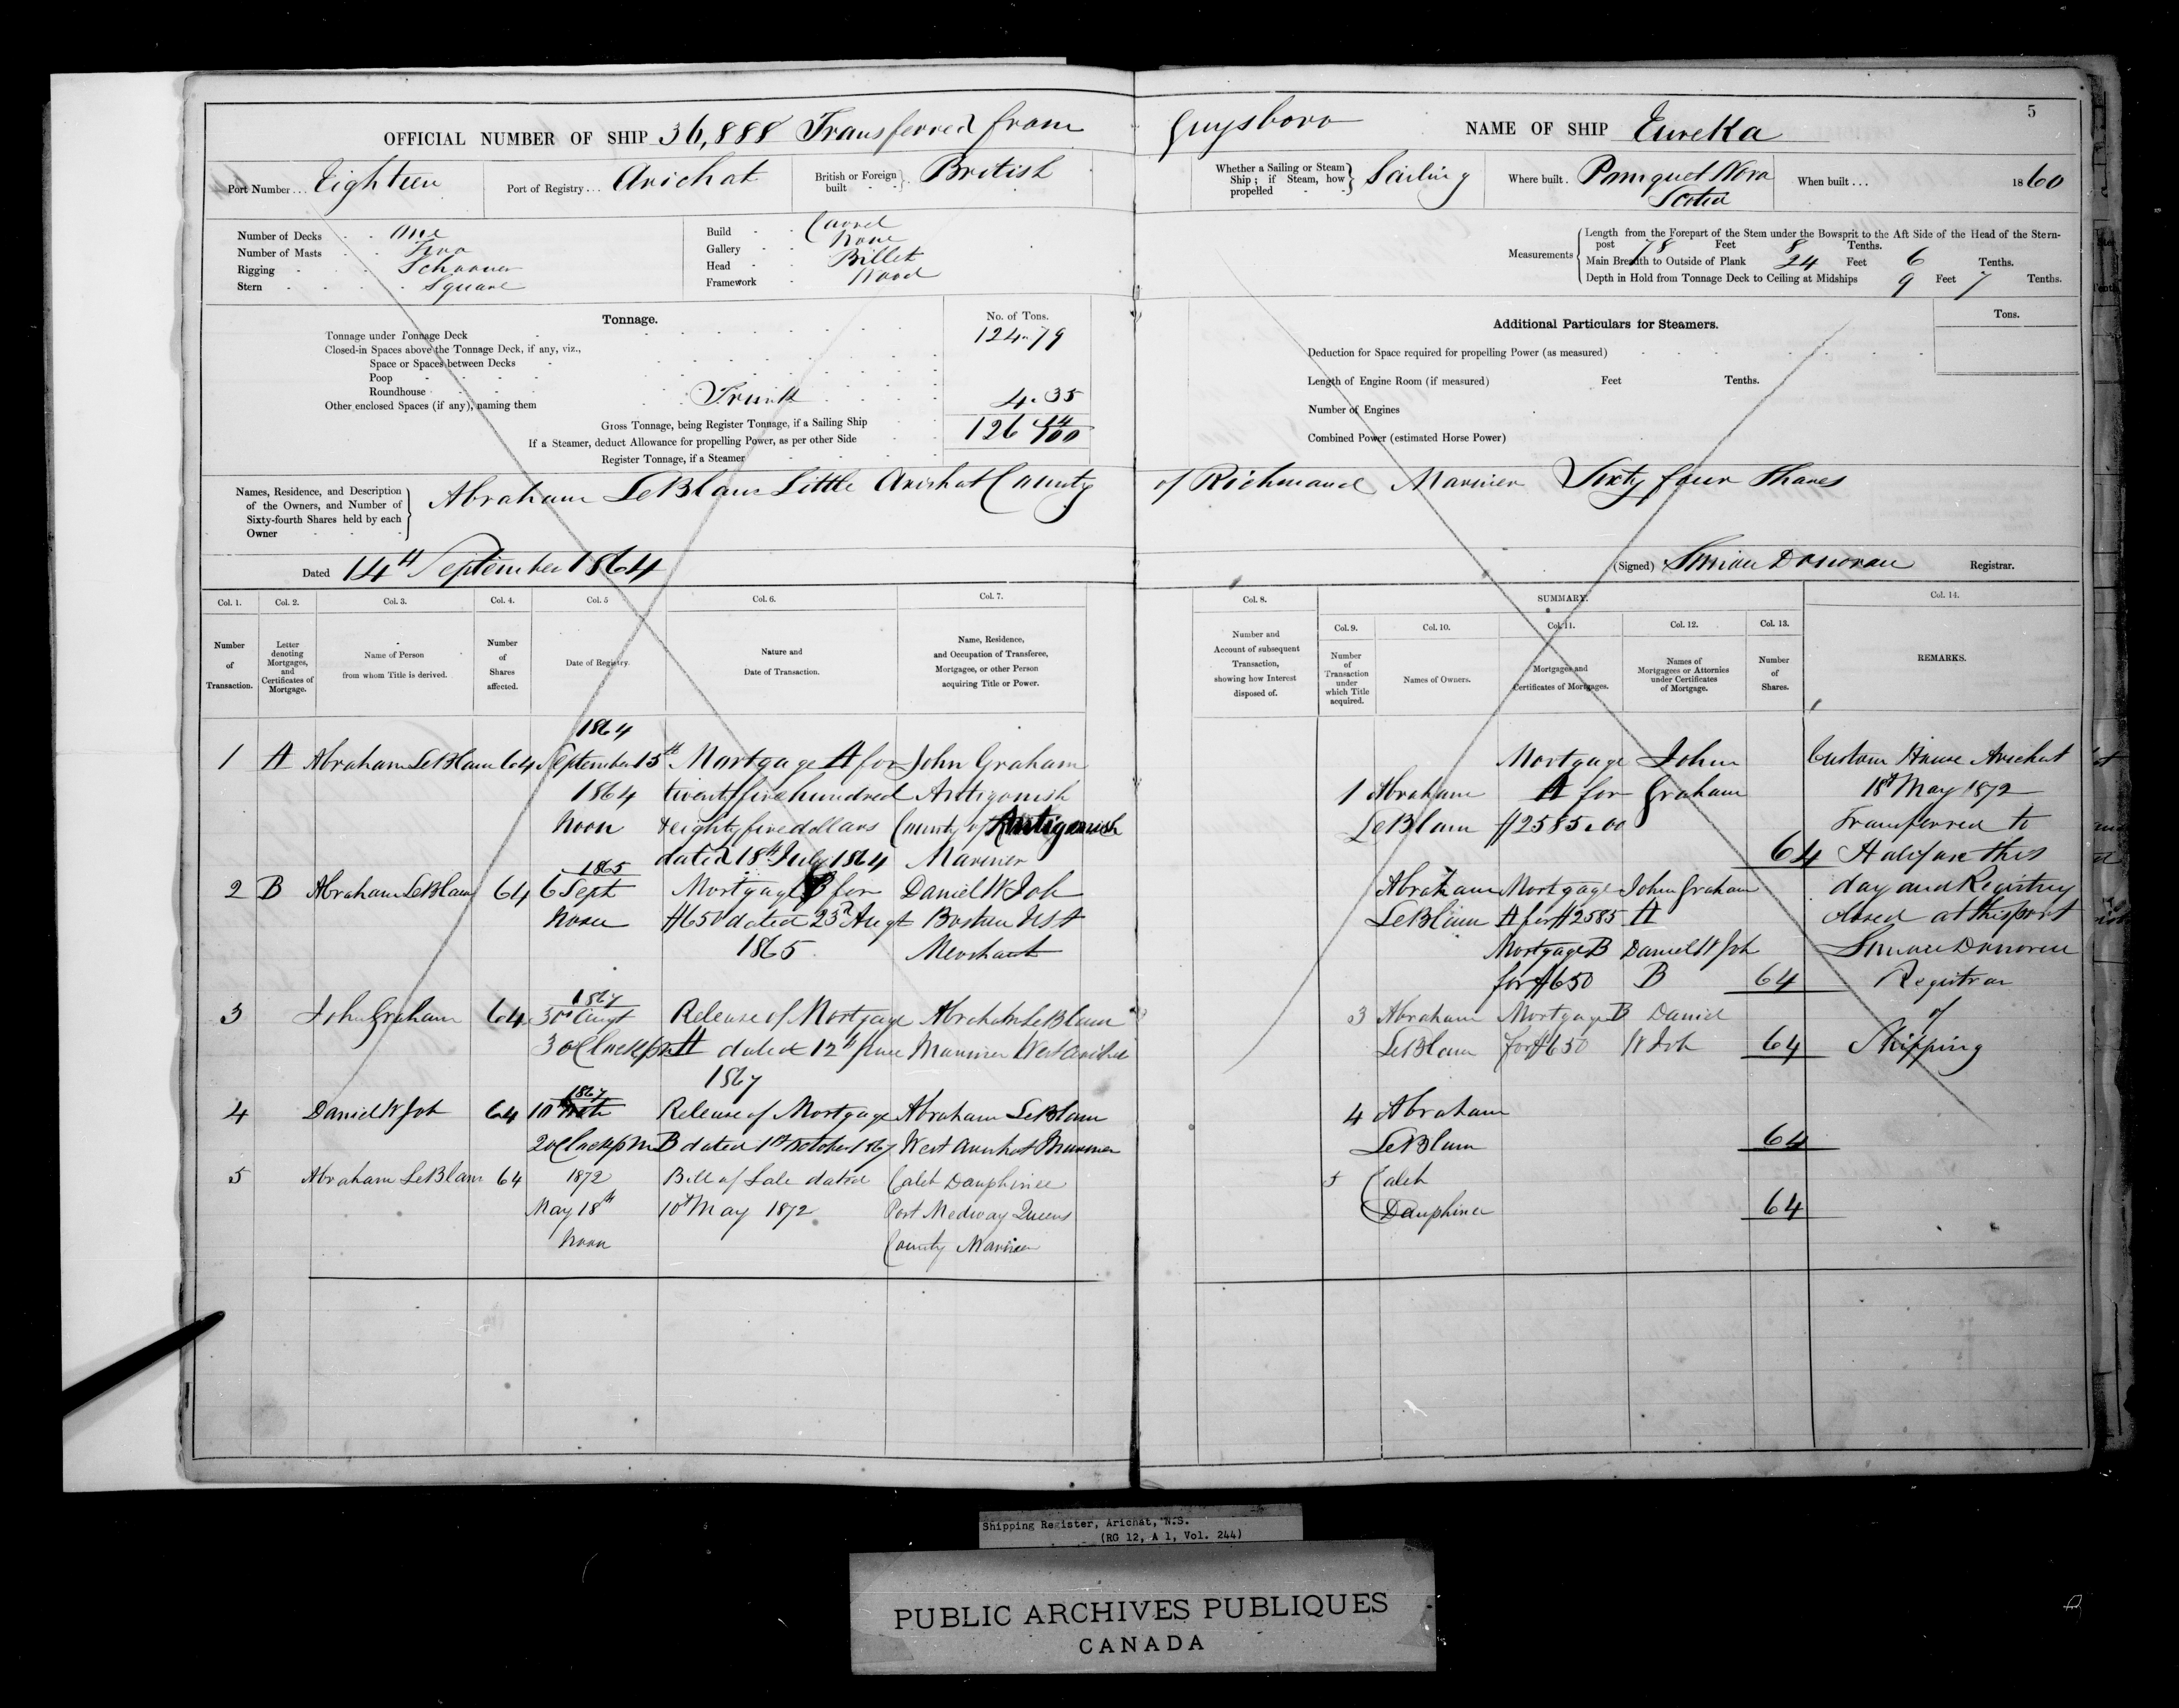 5
OFFICIAL NUMBER OF SHIP 36,888 Transferred from Guysboro NAME OF SHIP Eureka
Port Number... Eighteen Port of Registry... Arichat British or Foreign built British
Whether a Sailing or Steam Ship; if Steam, how propelled Sailing Where built. Pomquet Nova Scotia When built... 1860
Number of Decks One
Number of Masts Two
Rigging Schooner
Stern Square
Build Carvel
Gallery None
Head Billet
Framework Wood
Measurements
Length from the Forepart of the Stem under the Bowsprit to the Aft Side of the Head of the Stern-
post 78 Feet 8 Tenths.
Main Breadth to Outside of Plank 24 Feet 6 Tenths.
Depth in Hold from Tonnage Deck to Ceiling at Midships 9 Feet 7 Tenths.
Tonnage.
No. of Tons.
Tonnage under Tonnage Deck 124.79
Closed-in Spaces above the Tonnage Deck, if any, viz.,
Space or Spaces between Decks
Poop
Roundhouse
Other enclosed Spaces (if any), naming them Trunk 4.35
Gross Tonnage, being Register Tonnage, if a Sailing Ship 126
If a Steamer, deduct Allowance for propelling Power, as per other Side
Register Tonnage, if a Steamer
Additional Particulars for Steamers.
Tons.
Deduction for Space required for propelling Power (as measured)
Length of Engine Room (if measured) Feet Tenths.
Number of Engines
Combined Power (estimated Horse Power)
Names, Residence, and Description
of the Owners, and Number of
Sixty-fourth Shares held by each
Owner
Abraham LeBlanc Little Arichat County of Richmond Mariner Sixty four Shares
Dated 14th September 1864
(Signed) Donovan Registrar.
Col. 1. Col. 2. Col. 3. Col. 4. Col. 5 Col. 6. Col. 7.
Number of Transaction.
Letter denoting Mortgages, and Certificates of Mortgage.
Name of Person from whom Title is derived.
Number of Shares affected.
Date of Registry.
Nature and Date of Transaction.
Name, Residence, and Occupation of Transferee, Mortgagee, or other Person acquiring Title or Power.
1864
1 A Abraham LeBlanc 64 September 15th Mortgage A for John Graham
1864 twenty five hundred Antigonish
Noon & eighty five dollars County of Antigonish
dated 18th July 1864 Mariner
1865
2 B Abraham LeBlanc 64 6 Sept Mortgage B for Daniel W Job
Noon $650 dated 23d Augt Boston USA
1865 Merchant
1867
3 John Graham 64 30th Augt Release of Mortgage Abraham LeBlanc
3 oClock pm A dated 12th June Mariner West Arichat
1867
1867
4 Daniel W Job 64 10th Release of Mortgage Abraham LeBlanc
2 oClock pm B dated 1st October 1867 West Arichat Mariner
5 Abraham LeBlanc 64 1872 Bill of Sale dated Caleb Dauphinee
May 18th 10th May 1872 Port Medway Queens
Noon County Mariner
Col. 8. SUMMARY. Col. 14.
Col. 9. Col. 10. Col. 11. Col. 12. Col. 13.
Number and Account of subsequent Transaction, showing how Interest disposed of.
Number of Transaction under which Title acquired.
Names of Owners.
Mortgages and Certificates of Mortgages.
Names of Mortgagees or Attornies under Certificates of Mortgage.
Number of Shares.
REMARKS.
Mortgage John
1 Abraham A for Graham
LeBlanc $2585.00
64
Abraham Mortgage John Graham
LeBlanc A for $2585 A
Mortgage B Daniel W Job
for $650 B 64
3 Abraham Mortgage B Daniel
LeBlanc for $650 W Job 64
4 Abraham
LeBlanc 64
5 Caleb
Dauphinee 64
Custom House Arichat
18th May 1872
Transferred to
Halifax this
day and Registry
closed at this port
Donovan
Registrar
of
Shipping
Shipping Register, Arichat, N.S.
(RG 12, A 1, Vol. 244)
PUBLIC ARCHIVES PUBLIQUES
CANADA